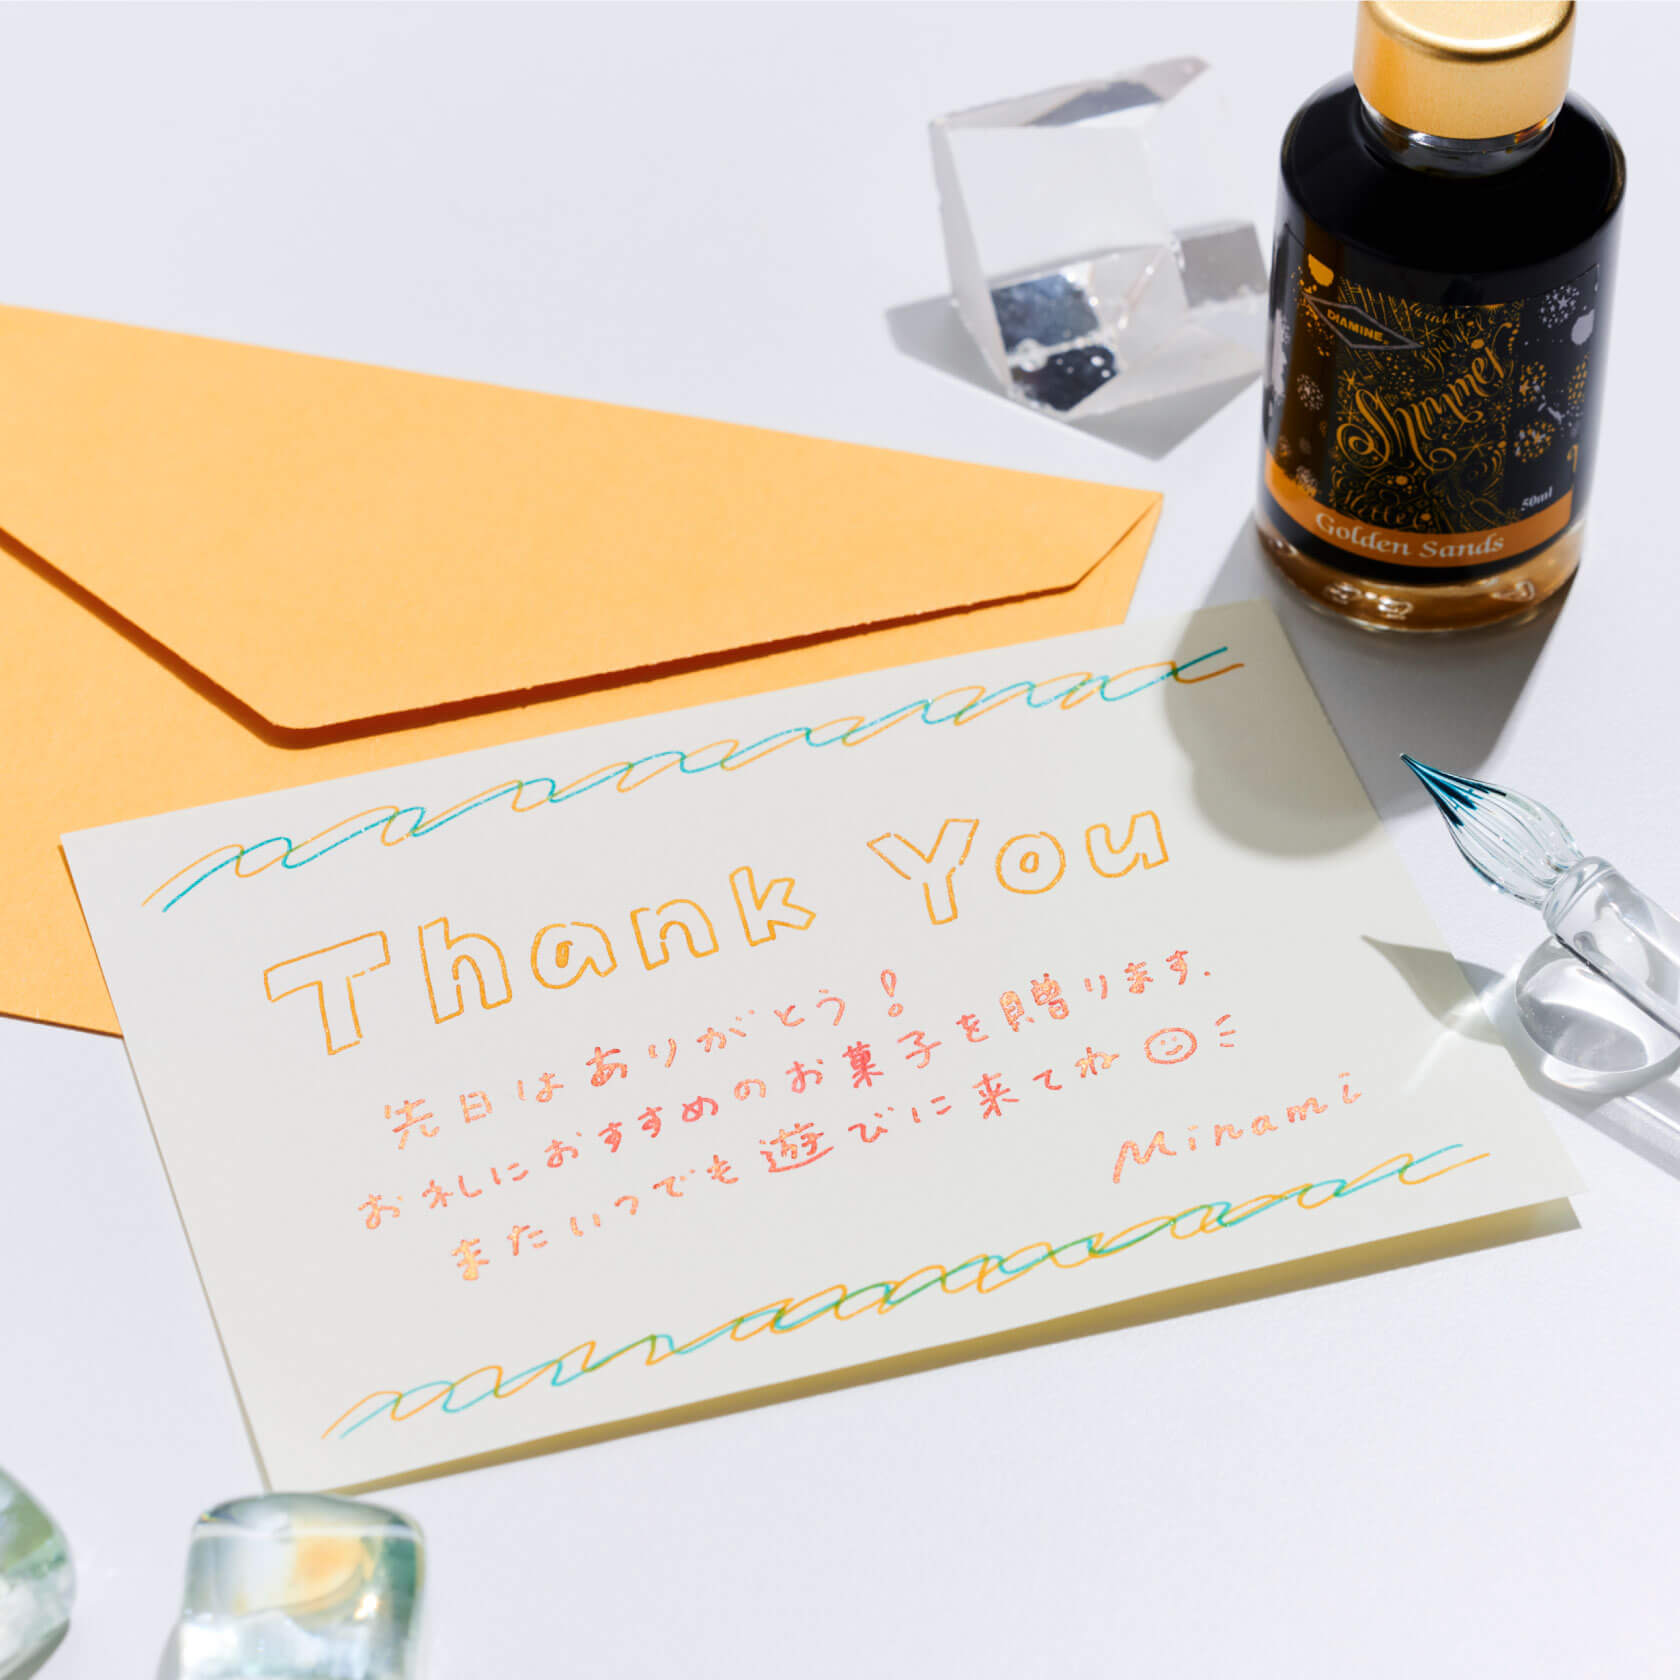 DIAMINE
Shimmer
50ml
Golden Sands
Thank You
先日はありがとう!
お礼におすすめのお菓子を贈ります.
またいつでも遊びに来てね
Minami